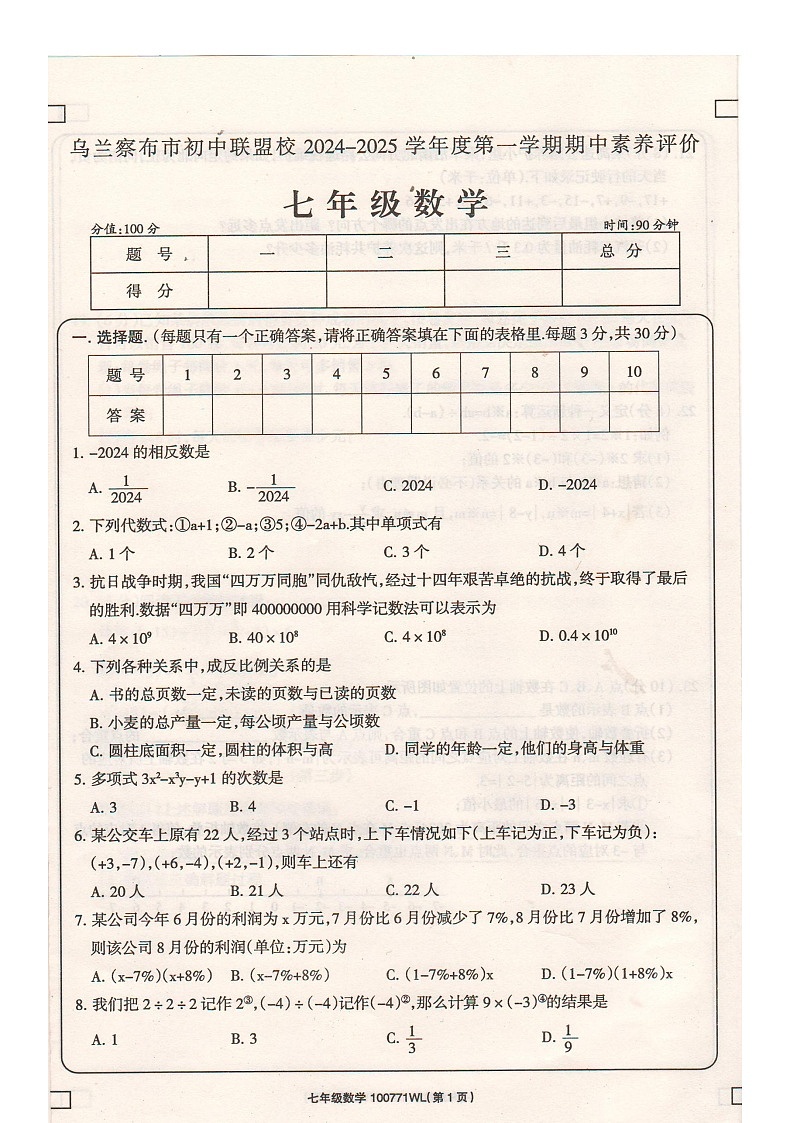 乌兰察布市初中联盟校 2024–2025 学年度第一学期期中素养评价
七年级数学
分值:100 分 时间:90 分钟
题 号 一 二 三 总 分
得 分
一. 选择题. (每题只有一个正确答案,请将正确答案填在下面的表格里.每题 3 分,共 30 分)
题 号 1 2 3 4 5 6 7 8 9 10
答 案
1. –2024 的相反数是
A. 1/2024 B. –1/2024 C. 2024 D. –2024
2. 下列代数式:①a+1;②–a;③5;④–2a+b.其中单项式有
A. 1 个 B. 2 个 C. 3 个 D. 4 个
3. 抗日战争时期,我国“四万万同胞”同仇敌忾,经过十四年艰苦卓绝的抗战,终于取得了最后
的胜利.数据“四万万”即 400000000 用科学记数法可以表示为
A. 4×10⁹ B. 40×10⁸ C. 4×10⁸ D. 0.4×10¹⁰
4. 下列各种关系中,成反比例关系的是
A. 书的总页数一定,未读的页数与已读的页数
B. 小麦的总产量一定,每公顷产量与公顷数
C. 圆柱底面积一定,圆柱的体积与高 D. 同学的年龄一定,他们的身高与体重
5. 多项式 3x²–x³y–y+1 的次数是
A. 3 B. 4 C. –1 D. –3
6. 某公交车上原有 22 人,经过 3 个站点时,上下车情况如下(上车记为正,下车记为负):
(+3,–7),(+6,–4),(+2,–1),则车上还有
A. 20 人 B. 21 人 C. 22 人 D. 23 人
7. 某公司今年 6 月份的利润为 x 万元,7 月份比 6 月份减少了 7%,8 月份比 7 月份增加了 8%,
则该公司 8 月份的利润(单位:万元)为
A. (x–7%)(x+8%) B. (x–7%+8%) C. (1–7%+8%)x D. (1–7%)(1+8%)x
8. 我们把 2÷2÷2 记作 2③,(–4)÷(–4)记作(–4)②,那么计算 9×(–3)④的结果是
A. 1 B. 3 C. 1/3 D. 1/9
七年级数学 100771WL(第 1 页)